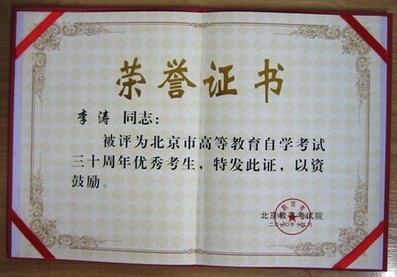 荣誉证书
李涛 同志：
被评为北京市高等教育自学考试
三十周年优秀考生，特发此证，以资
鼓励。
北京教育考试院